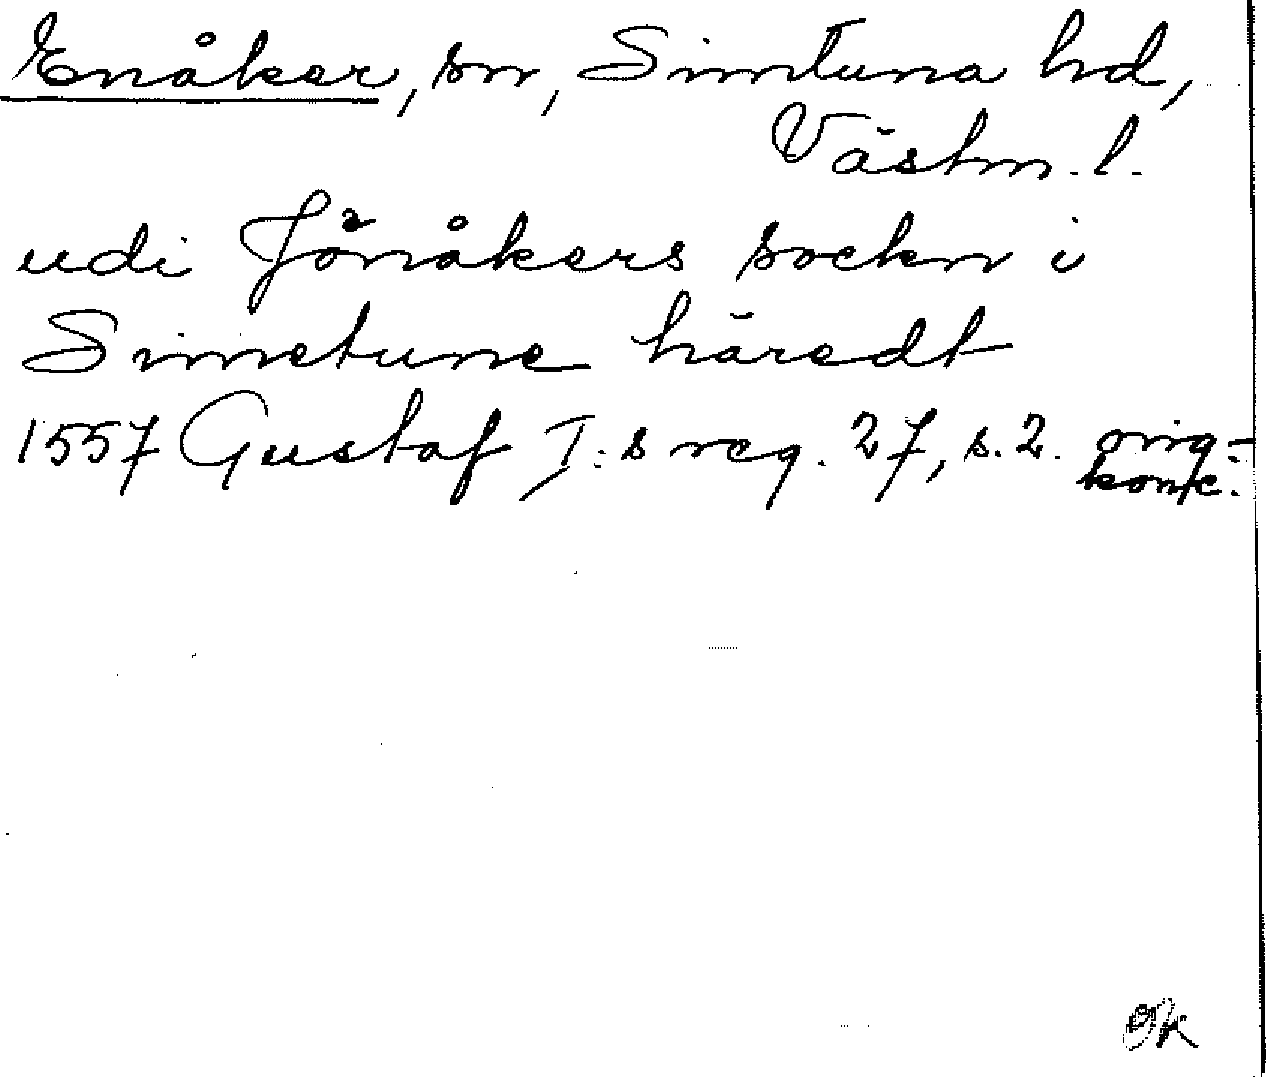 Enåker, sn, Simtuna hd,
Västm. l.
udi Jönåkers sockn i
Simetune häredt
1557 Gustaf I:s reg. 27, s. 2. orig-
konc.